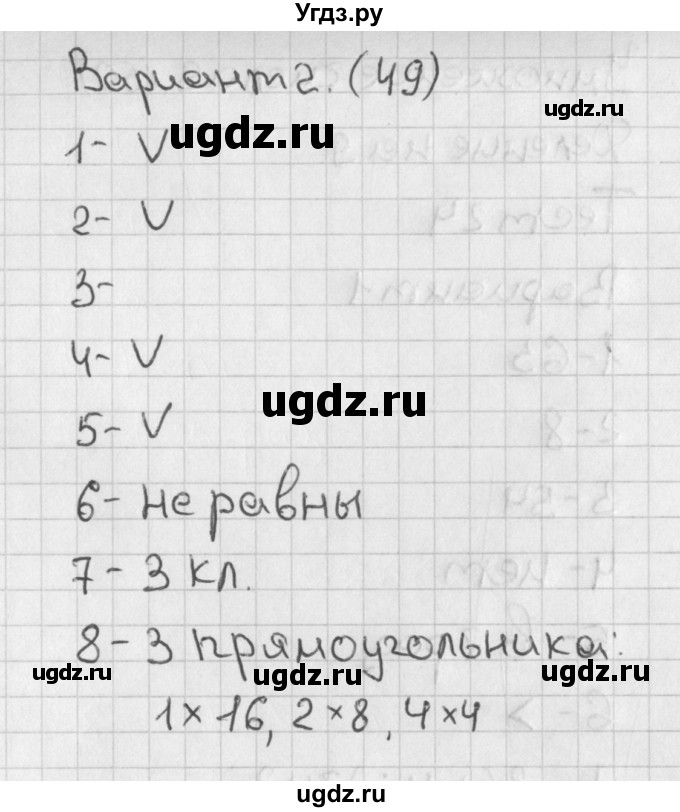 Угдз.ру
Вариант 2. (49)
ugdz.ru
1- V ugdz.ru
2- V
3-
4- V
ugdz.ru
5- V
6- не равны
7- 3 кл.
8- 3 прямоугольника:
ugdz.ru ugdz.ru ugdz.ru
1 × 16, 2 × 8, 4 × 4
ugdz.ru